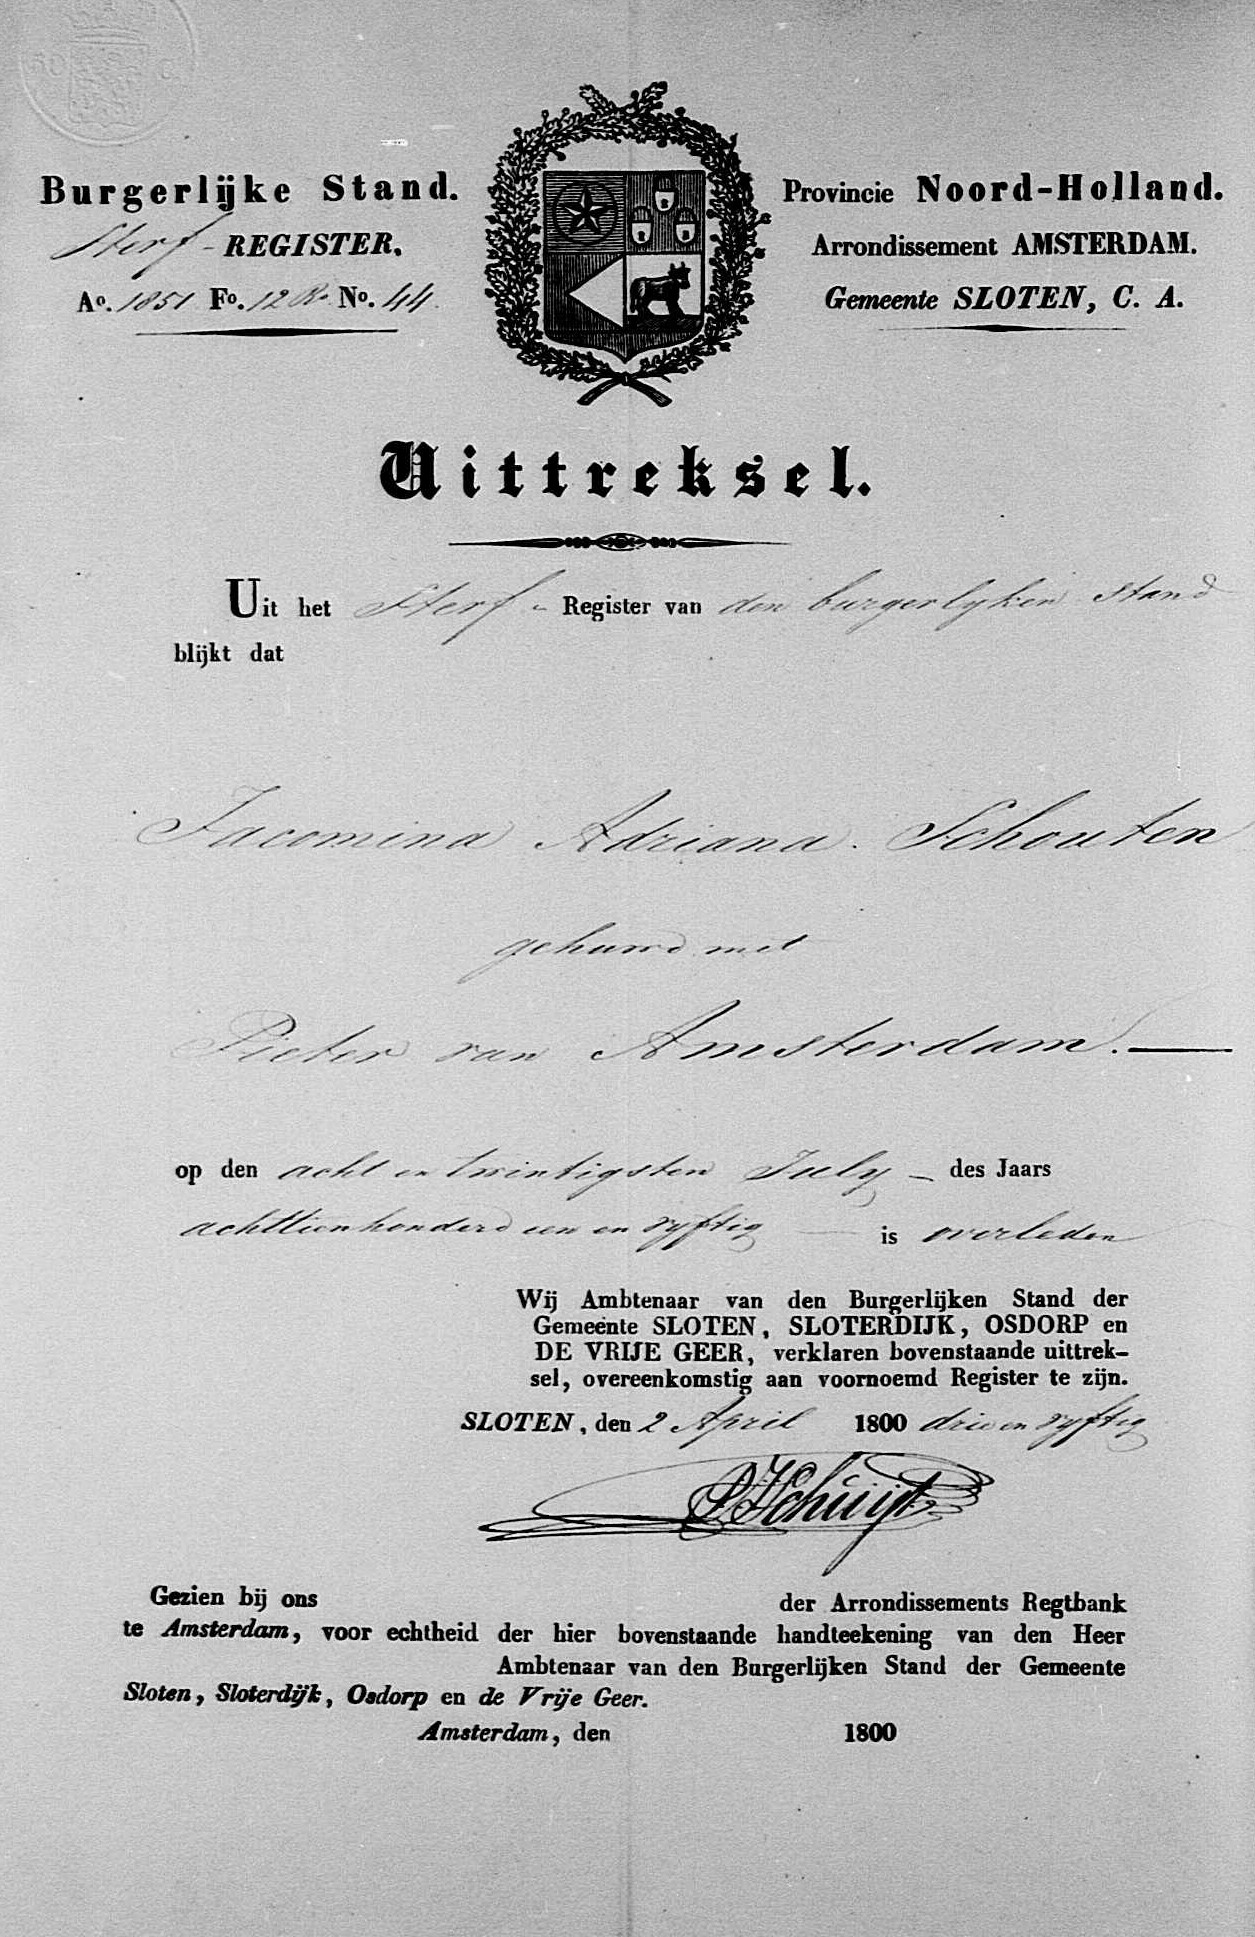 Burgerlijke Stand.
Sterf - REGISTER.
Ao. 1851 Fo. 12 No. 44
Provincie Noord-Holland.
Arrondissement AMSTERDAM.
Gemeente SLOTEN, C. A.
Uittreksel.
Uit het Sterf - Register van den burgerlyken stand
blijkt dat
Jacomina Adriana Schouten
gehuwd met
Pieter van Amsterdam. —
op den acht en twintigsten July – des Jaars
achttienhonderd een en vyftig — is overleden
Wij Ambtenaar van den Burgerlijken Stand der
Gemeente SLOTEN, SLOTERDIJK, OSDORP en
DE VRIJE GEER, verklaren bovenstaande uittrek-
sel, overeenkomstig aan voornoemd Register te zijn.
SLOTEN, den 2 April 1800 drie en vyftig
Gezien bij ons der Arrondissements Regtbank
te Amsterdam, voor echtheid der hier bovenstaande handteekening van den Heer
Ambtenaar van den Burgerlijken Stand der Gemeente
Sloten, Sloterdijk, Osdorp en de Vrije Geer.
Amsterdam, den 1800